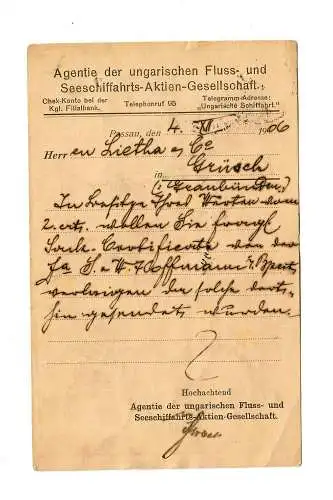 Agentie der ungarischen Fluss- und
Seeschiffahrts-Aktien-Gesellschaft.
Chek-Konto bei der
Kgl. Filialbank.
Telephonruf 95
Telegramm-Adresse:
"Ungarische Schiffahrt."
Passau, den 4. VII 1906
Herren Lietha & Co
in Grüsch
(Graubünden)
In Besitze Ihres Werten vom
2. crt. wollen Sie fragl
Sack-Certificate von der
fa S. & W. Hoffmann
verlangen da solche dort-
hin gesendet wurden.
Hochachtend
Agentie der ungarischen Fluss- und
Seeschiffahrts-Aktien-Gesellschaft.